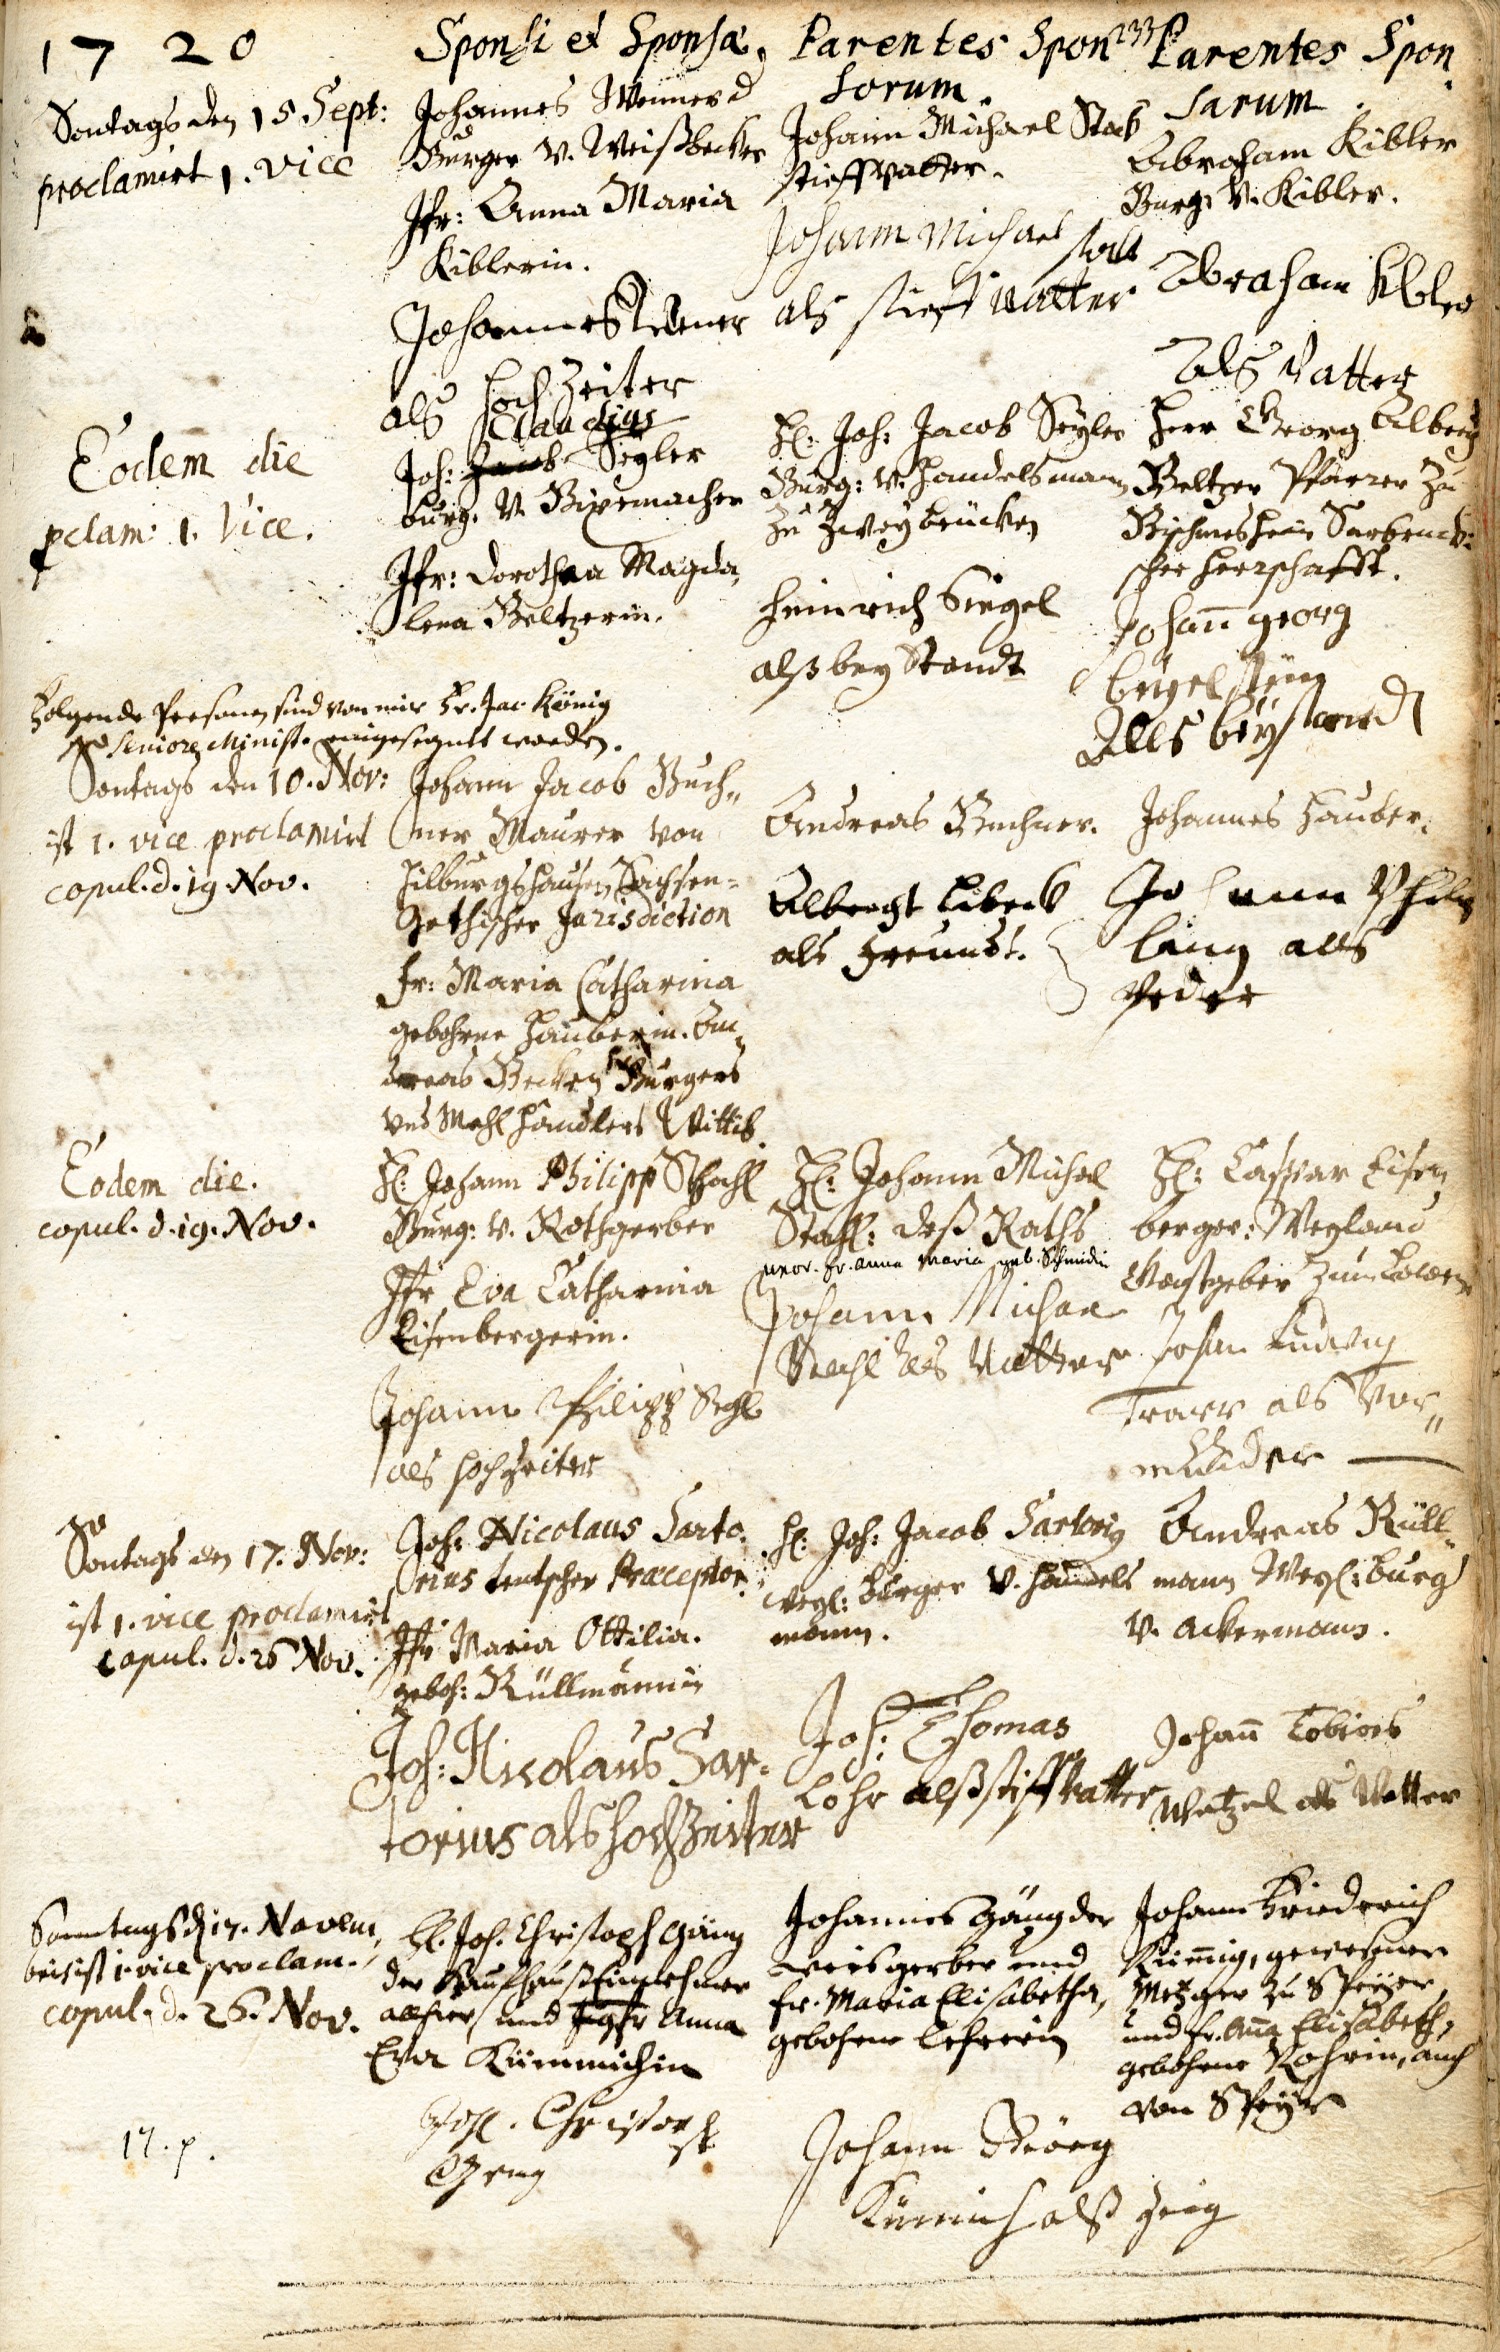 1720
Sponsi et Sponsæ.
Parentes Spon
sorum.
Parentes Spon
sarum.
Sontags den 15 Sept:
proclamirt 1. vice
Johannes Wenner
Burger v. Weißbecker
Jfr: Anna Maria
Kiblerin.
Johannes Wener
als Hochzeiter
Johann Michael Stab
stieffvatter.
Johann Michael
stab
als stieff vatter
Abraham Kibler
Burg. v. Kibler.
Abraham Kibler
Als Vatter
Eodem die
pclam: 1. Vice.
Claudius
Joh: Jacob Seyler
burg. v. Bixemacher
Jfr: Dorothea Magda
lena Beltzerin.
H: Joh: Jacob Seyler
Burg: v. Handelsmann
zu Zweybrücken
Heinrich Siegel
alß bey Standt
Herr Georg Albert
Beltzer Pfarrer zu
Bischmesheim Sarbrück:
scher Herrschafft.
Johann georg
Als beystand
Folgende Personen sind von mir Fr. Jac. König
Seniore Minist. eingesegnet worden.
Sontags den 10. Nov:
ist 1. vice proclamirt
copul. d. 19. Nov.
Johann Jacob Buch„
ner Maurer von
Hilburgshausen Sachsen=
Gothischer Jurisdiction
Fr: Maria Catharina
gebohrne Hauberin. An
dreas Becken Burgers
und Mehl händlers Wittib.
Andreas Buchner.
Albrecht Libeck
als Freundt.
Johannes Hauber.
Johann
lang als
Veder
Eodem die.
copul. d. 19. Nov.
H: Johann Philipp Stahl
Burg: v. Rothgerber
Jfr Eva Catharina
Eisenbergerin.
Johann Philipp
als Hochzeiter
H: Johann Michel
Stahl: deß Raths
uxor. Fr. Anna Maria geb. Schmidin
Johann Michae
Stahl als Vatter
H: Caspar Eisen
berger: Weyland
Gastgeber zum
Johan Ludwig
als Vor„
münder
Sontags den 17. Nov:
ist 1. vice proclamirt
copul. d. 26 Nov.
Joh: Nicolaus Sarto
rius teutscher Præceptor.
Jfr Maria Ottilia.
geboh: Rüllmännin
Joh: Nicolaus Sar=
torius als Hochzeiter
H: Joh: Jacob Sartorig
weyl: Burger v. Handels
mann.
Joh: Thomas
Lohr alß stiffVatter
Andreas Rüll
mann Weyl: burg
v. Ackermann.
Johann Tobias
Watzel als Vetter
Sonntags d. 17. Novem
bris ist 1. vice proclam.
copul. d. 26. Nov.
H. Joh. Christoph Gäng
der Kaufhauß Einnehmer
allhier, und Jgfr Anna
Eva Kümmichin
Joh. Christoph
Geng
Johannes Gäng der
weisgerber und
Fr. Maria Elisabetha,
gebohrne Lehrerin
Johann Friederich
Kümmig, gewesener
Metzger zu Speyer,
und Fr. Anna Elisabeth,
gebohrne Rohrin, auch
von Speyer
17. p.
Johann Görg
Kümich alß